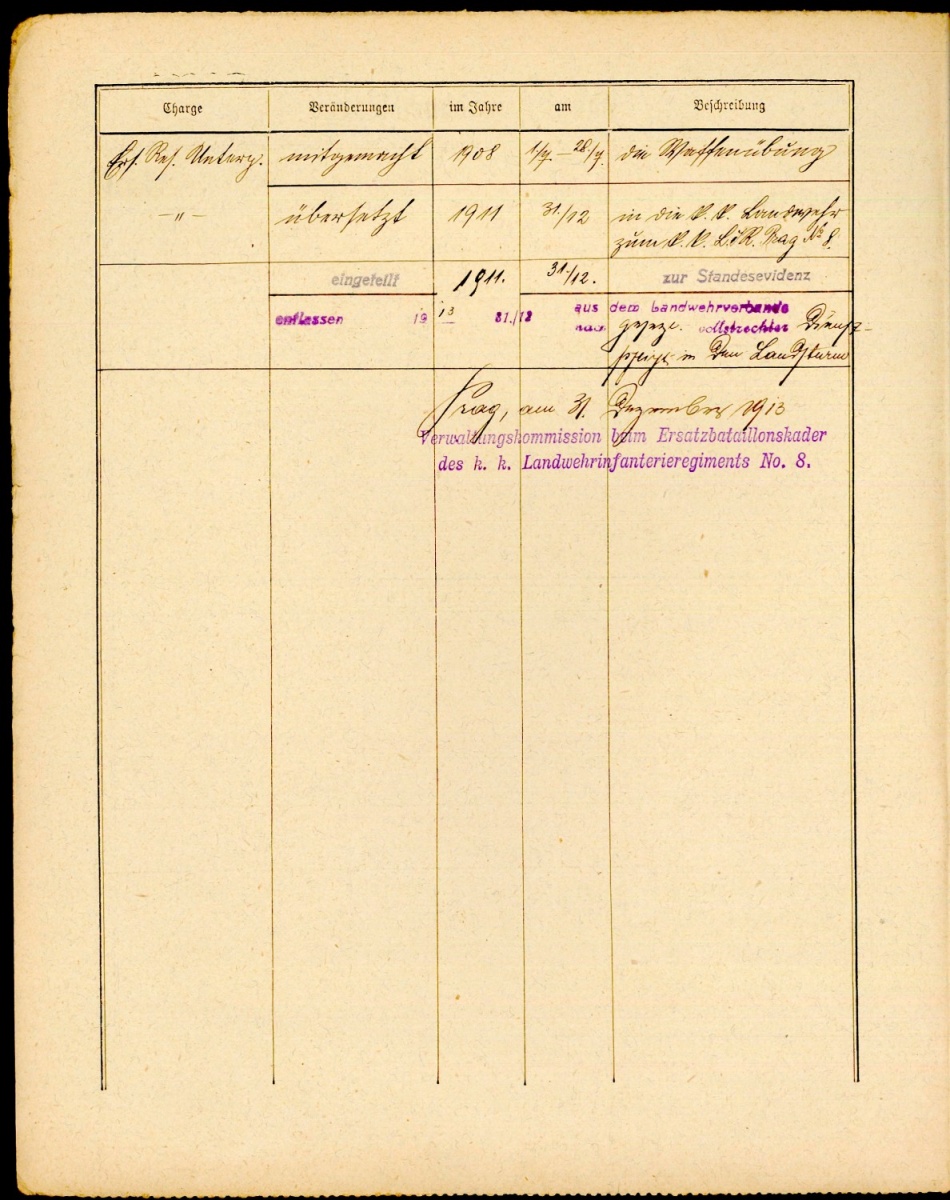 Charge Veränderungen im Jahre am Beschreibung
Ers. Res. Unterj. mitgemacht 1908 1/9. – 28/9. die Waffenübung
–"– übersetzt 1911 31/12 in die k. k. Landwehr
zum k. k. L.I.R. Prag No 8.
eingeteilt 1911. 31./12. zur Standesevidenz
entlassen 1913 31./12 aus dem Landwehrverbande
nach gesezl. vollstreckter Dienst-
pflicht in den Landsturm
Prag, am 31. Dezember 1913
Verwaltungskommission beim Ersatzbataillonskader
des k. k. Landwehrinfanterieregiments No. 8.